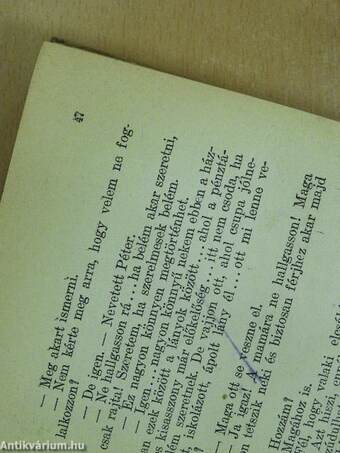 47
— Meg akart ismerni.
— Nem kérte meg arra, hogy velem ne fog-
lalkozzon?
— De igen. — Nevetett Péter.
— Ne hallgasson rá...ha belém akar szeretni,
csak rajta! Szeretem, ha szerelmesek belém.
— Ez nagyon könnyen megtörténhet.
— Igen...nagyon könnyű nekem ebben a ház-
ban ezek között a lányok között...ahol a pénztá-
ros kisasszony már előkelőség...itt nem csoda, ha
belém szeretnek. De vajjon ott, ahol csupa jólne-
velt, iskolázott, ápolt lány él...ott mi lenne ve-
— Maga ott se veszne el.
— Ja igaz! A mamára ne hallgasson! Maga
tetszik neki és biztosan férjhez akar majd
Hozzám?
Magához is.
Fél, hogy valaki
Azt
antikvarium.hu